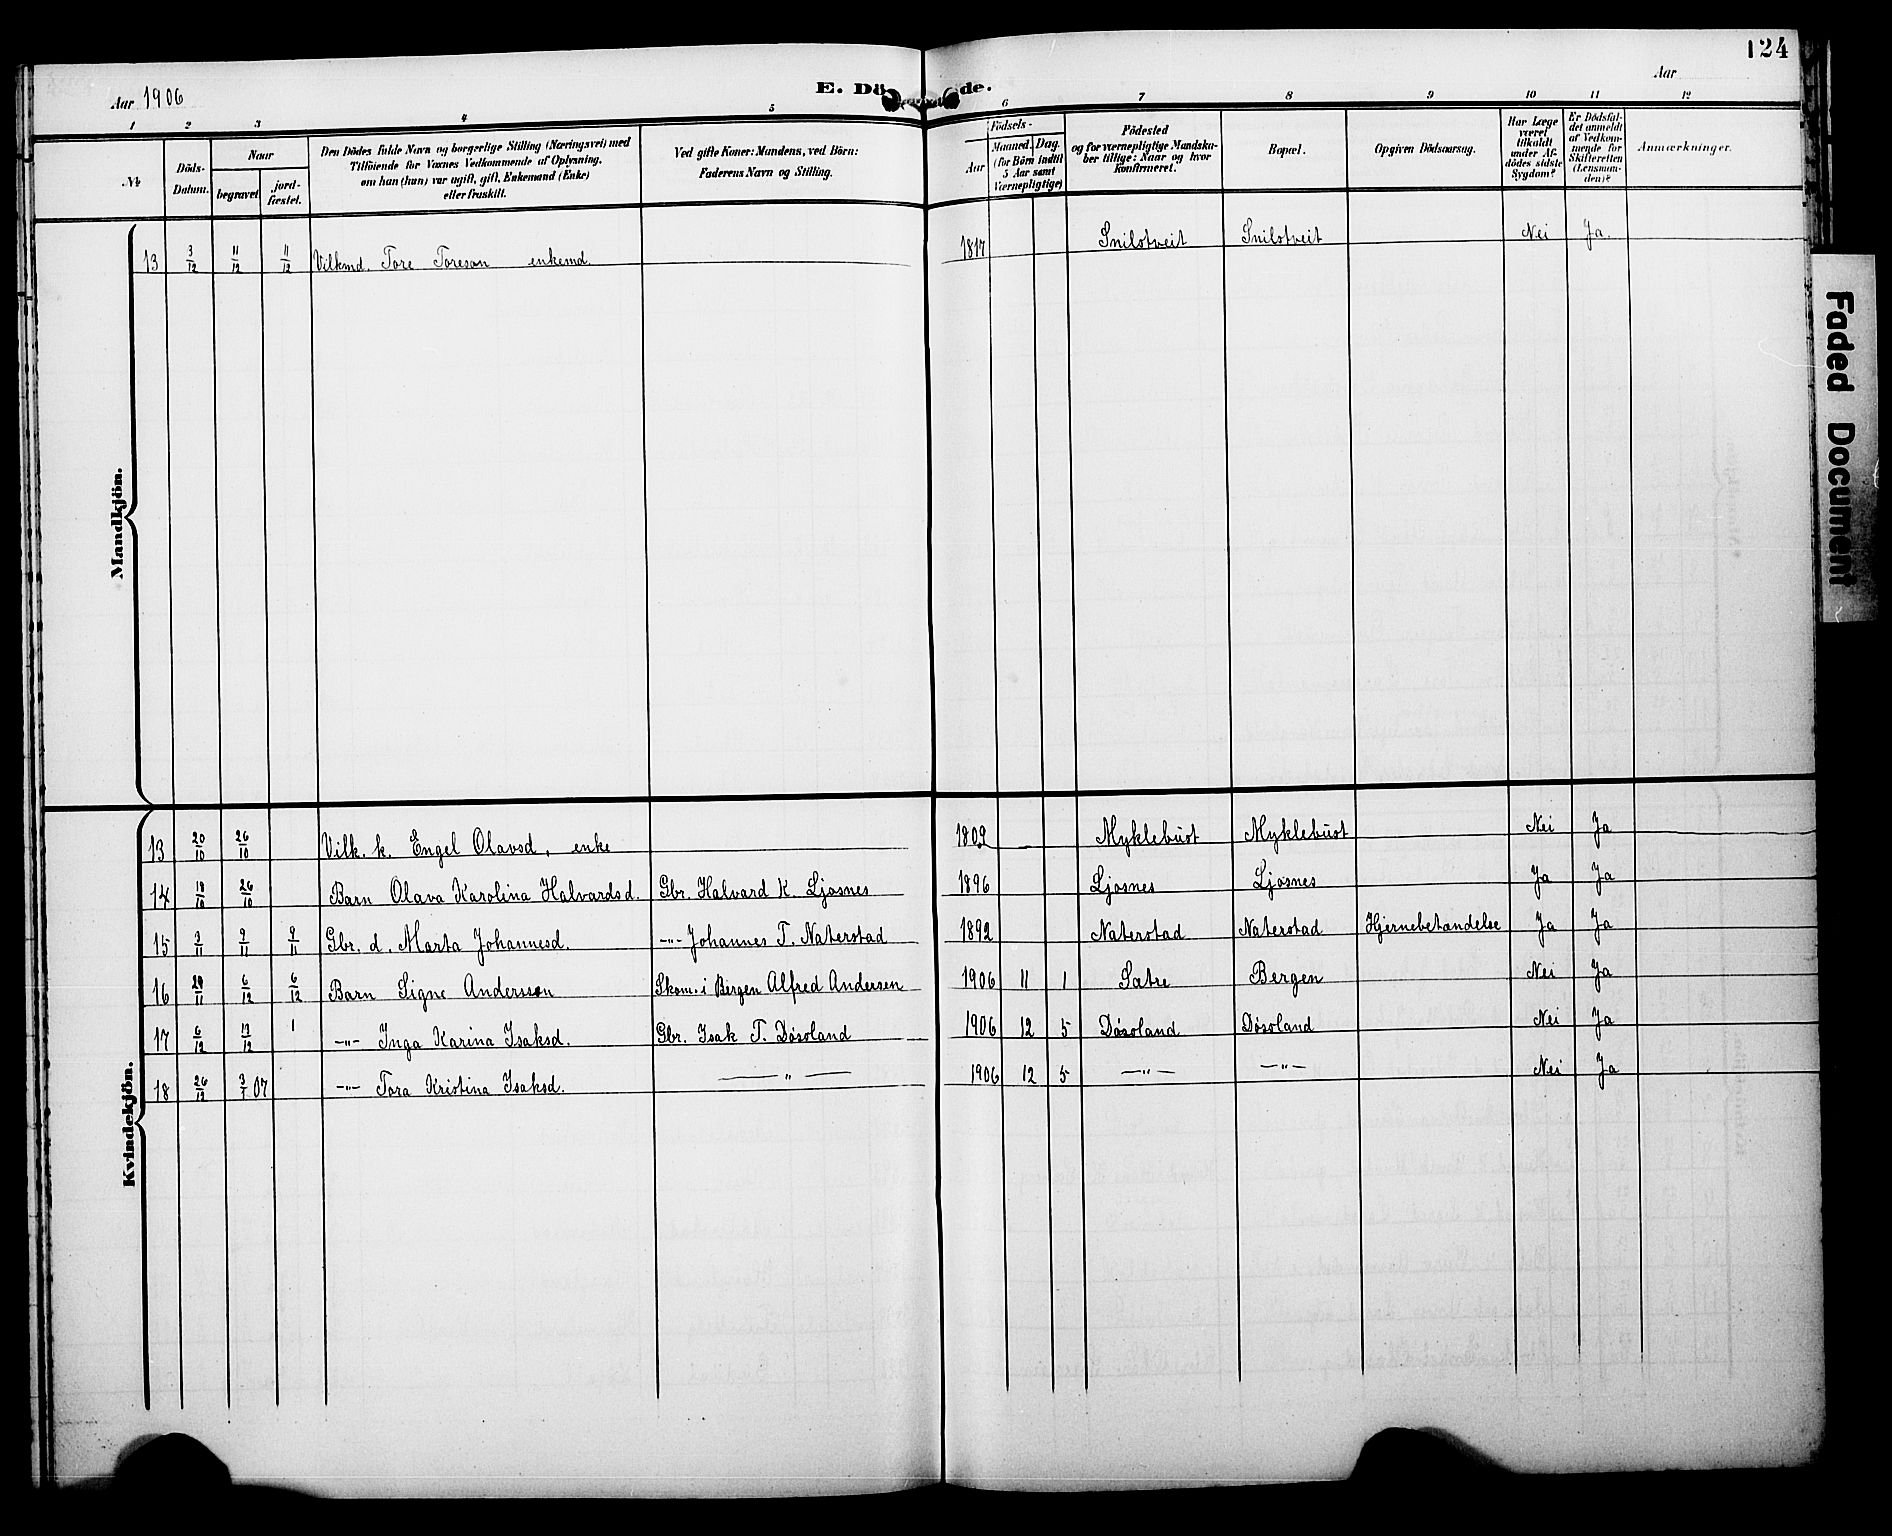 124
Aar 1906
E. Dö
de.
Aar
1 2 3 4 5 6 7 8 9 10 11 12
№
Döds-Datum.
Naar
begravet
jord-fæstet.
Den Dödes fulde Navn og borgerlige Stilling (Næringsvei) med
Tilföiende for Voxnes Vedkommende af Oplysning,
om han (hun) var ugift, gift, Enkemand (Enke)
eller fraskilt.
Ved gifte Koner: Mandens, ved Börn:
Faderens Navn og Stilling.
Födsels-
Aar
Maaned. Dag.
(for Börn indtil
5 Aar samt
Værnepligtige)
Födested
og for værnepligtige Mandsku-
ber tillige: Naar og hvor
konfirmeret.
Bopæl.
Opgiven Dödsaarsag.
Har Læge
været
tilkaldt
under Af-
dödes sidste
Sygdom?
Er Dödsfal-
det anmeldt
af Vedkom-
mende for
Skifteretten
(Lensman-
den)?
Anmærkninger.
Mandkjön.
13 3/12 11/12 11/12 Vilkmd. Tore Toreson enkemd. 1817 Snilstveit Snilstveit Nei Ja.
Kvindekjön.
13 20/10 26/10 Vilk. k. Engel Olavsd, enke 1809 Myklebust Myklebust Nei Ja
14 18/10 26/10 Barn Olava Karolina Halvardsd. Gbr. Halvard K. Ljosnes 1896 Ljosnes Ljosnes Ja Ja
15 3/11 9/11 9/11 Gbr. d. Marta Johannesd. -"- Johannes T. Naterstad 1892 Naterstad Naterstad Hjernebetændelse Ja Ja
16 29/11 6/12 6/12 Barn Signe Anderssen Skom. i Bergen Alfred Andersen 1906 11 1 Sætre Bergen Nei Ja
17 6/12 13/12 1 -"- Inga Karina Isaksd. Gbr. Isak T. Døsoland 1906 12 5 Døsoland Døsoland Nei Ja
18 26/12 3/1 07 -"- Tora Kristina Isaksd. -"- 1906 12 5 -"- -"- Nei Ja
Faded Document